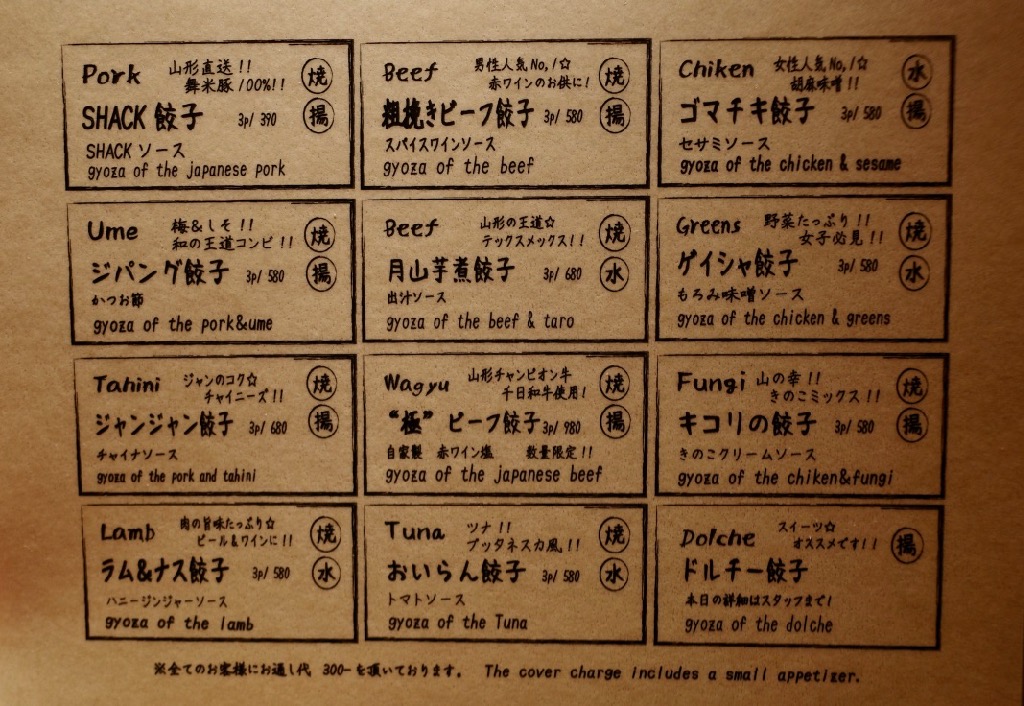 Pork 山形直送!! 焼
舞米豚100%!!
SHACK 餃子 3p/ 390 揚
SHACK ソース
gyoza of the japanese pork
Beef 男性人気No,1☆ 焼
赤ワインのお供に!
粗挽きビーフ餃子 3p/ 580 揚
スパイスワインソース
gyoza of the beef
Chiken 女性人気No,1☆ 水
胡麻味噌!!
ゴマチキ餃子 3p/ 580 揚
セサミソース
gyoza of the chicken & sesame
Ume 梅&しそ!! 焼
和の王道コンビ!!
ジパング餃子 3p/ 580 揚
かつお節
gyoza of the pork&ume
Beef 山形の王道☆ 焼
テックスメックス!!
月山芋煮餃子 3p/ 680 水
出汁ソース
gyoza of the beef & taro
Greens 野菜たっぷり!! 焼
女子必見!!
ゲイシャ餃子 3p/ 580 水
もろみ味噌ソース
gyoza of the chicken & greens
Tahini ジャンのコク☆ 焼
チャイニーズ!!
ジャンジャン餃子 3p/ 680 揚
チャイナソース
gyoza of the pork and tahini
Wagyu 山形チャンピオン牛 焼
千日和牛使用!
“極” ビーフ餃子 3p/ 980 揚
自家製 赤ワイン塩 数量限定!!
gyoza of the japanese beef
Fungi 山の幸!! 焼
きのこミックス!!
キコリの餃子 3p/ 580 揚
きのこクリームソース
gyoza of the chiken&fungi
Lamb 肉の旨味たっぷり☆ 焼
ビール&ワインに!!
ラム&ナス餃子 3p/ 580 水
ハニージンジャーソース
gyoza of the lamb
Tuna ツナ!! 焼
プッタネスカ風!!
おいらん餃子 3p/ 580 水
トマトソース
gyoza of the Tuna
Dolche スイーツ☆ 揚
オススメです!!
ドルチー餃子
本日の詳細はスタッフまで!
gyoza of the dolche
※全てのお客様にお通し代 300-を頂いております。 The cover charge includes a small appetizer.